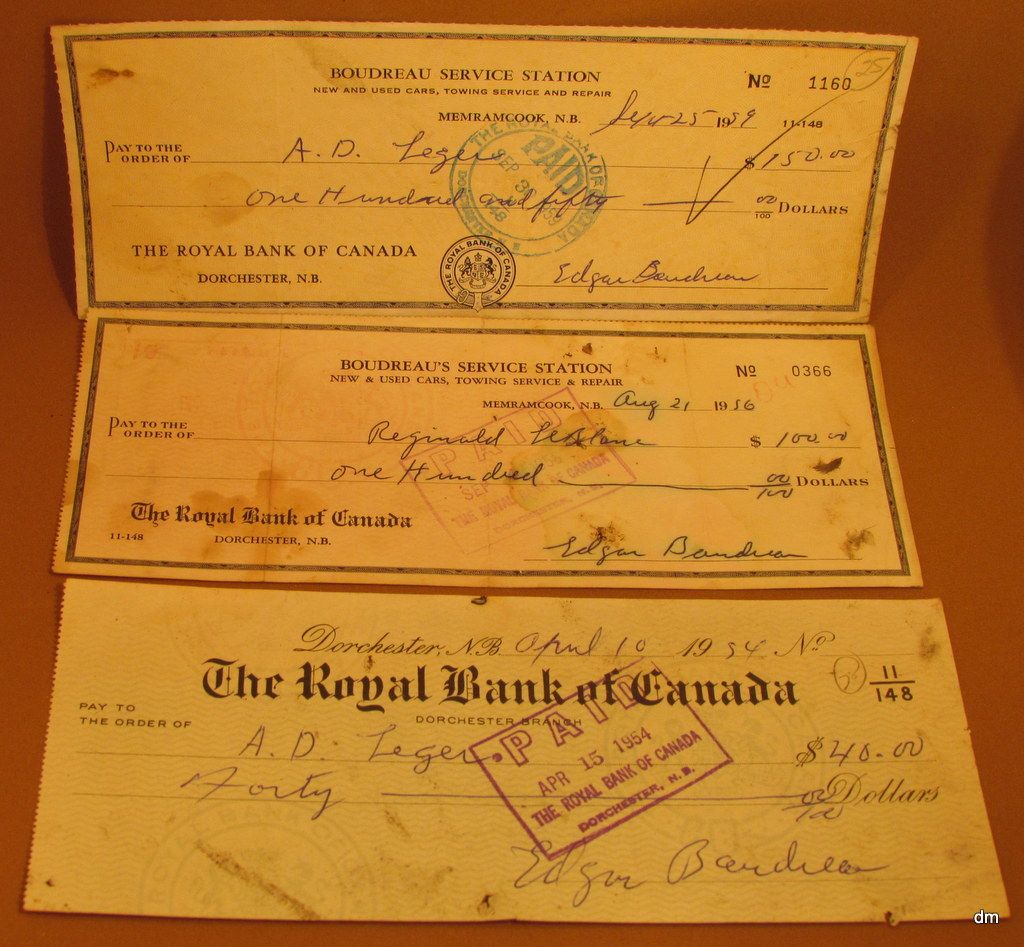 BOUDREAU SERVICE STATION
NEW AND USED CARS, TOWING SERVICE AND REPAIR
No 1160
25
MEMRAMCOOK, N.B. Sept 25 1959 11-148
PAY TO THE ORDER OF A. D. Leger $150.00
One Hundred and fifty 00/100 DOLLARS
THE ROYAL BANK OF CANADA
DORCHESTER, N.B.
Edgar Boudreau
THE ROYAL BANK OF CANADA
PAID
SEP 30
148
THE ROYAL BANK OF CANADA
BOUDREAU'S SERVICE STATION
NEW & USED CARS, TOWING SERVICE & REPAIR
No 0366
MEMRAMCOOK, N.B. Aug 21 1956
PAY TO THE ORDER OF Reginald LeBlanc $100.00
One Hundred 00/100 DOLLARS
The Royal Bank of Canada
11-148 DORCHESTER, N.B.
Edgar Boudreau
PAID
SEP
THE ROYAL BANK OF CANADA
DORCHESTER, N.B.
Dorchester, N.B. April 10 1954 No
The Royal Bank of Canada
11/148
DORCHESTER BRANCH
PAY TO THE ORDER OF A. D. Leger $40.00
Forty 00/100 Dollars
Edgar Boudreau
PAID
APR 15 1954
THE ROYAL BANK OF CANADA
DORCHESTER, N.B.
dm